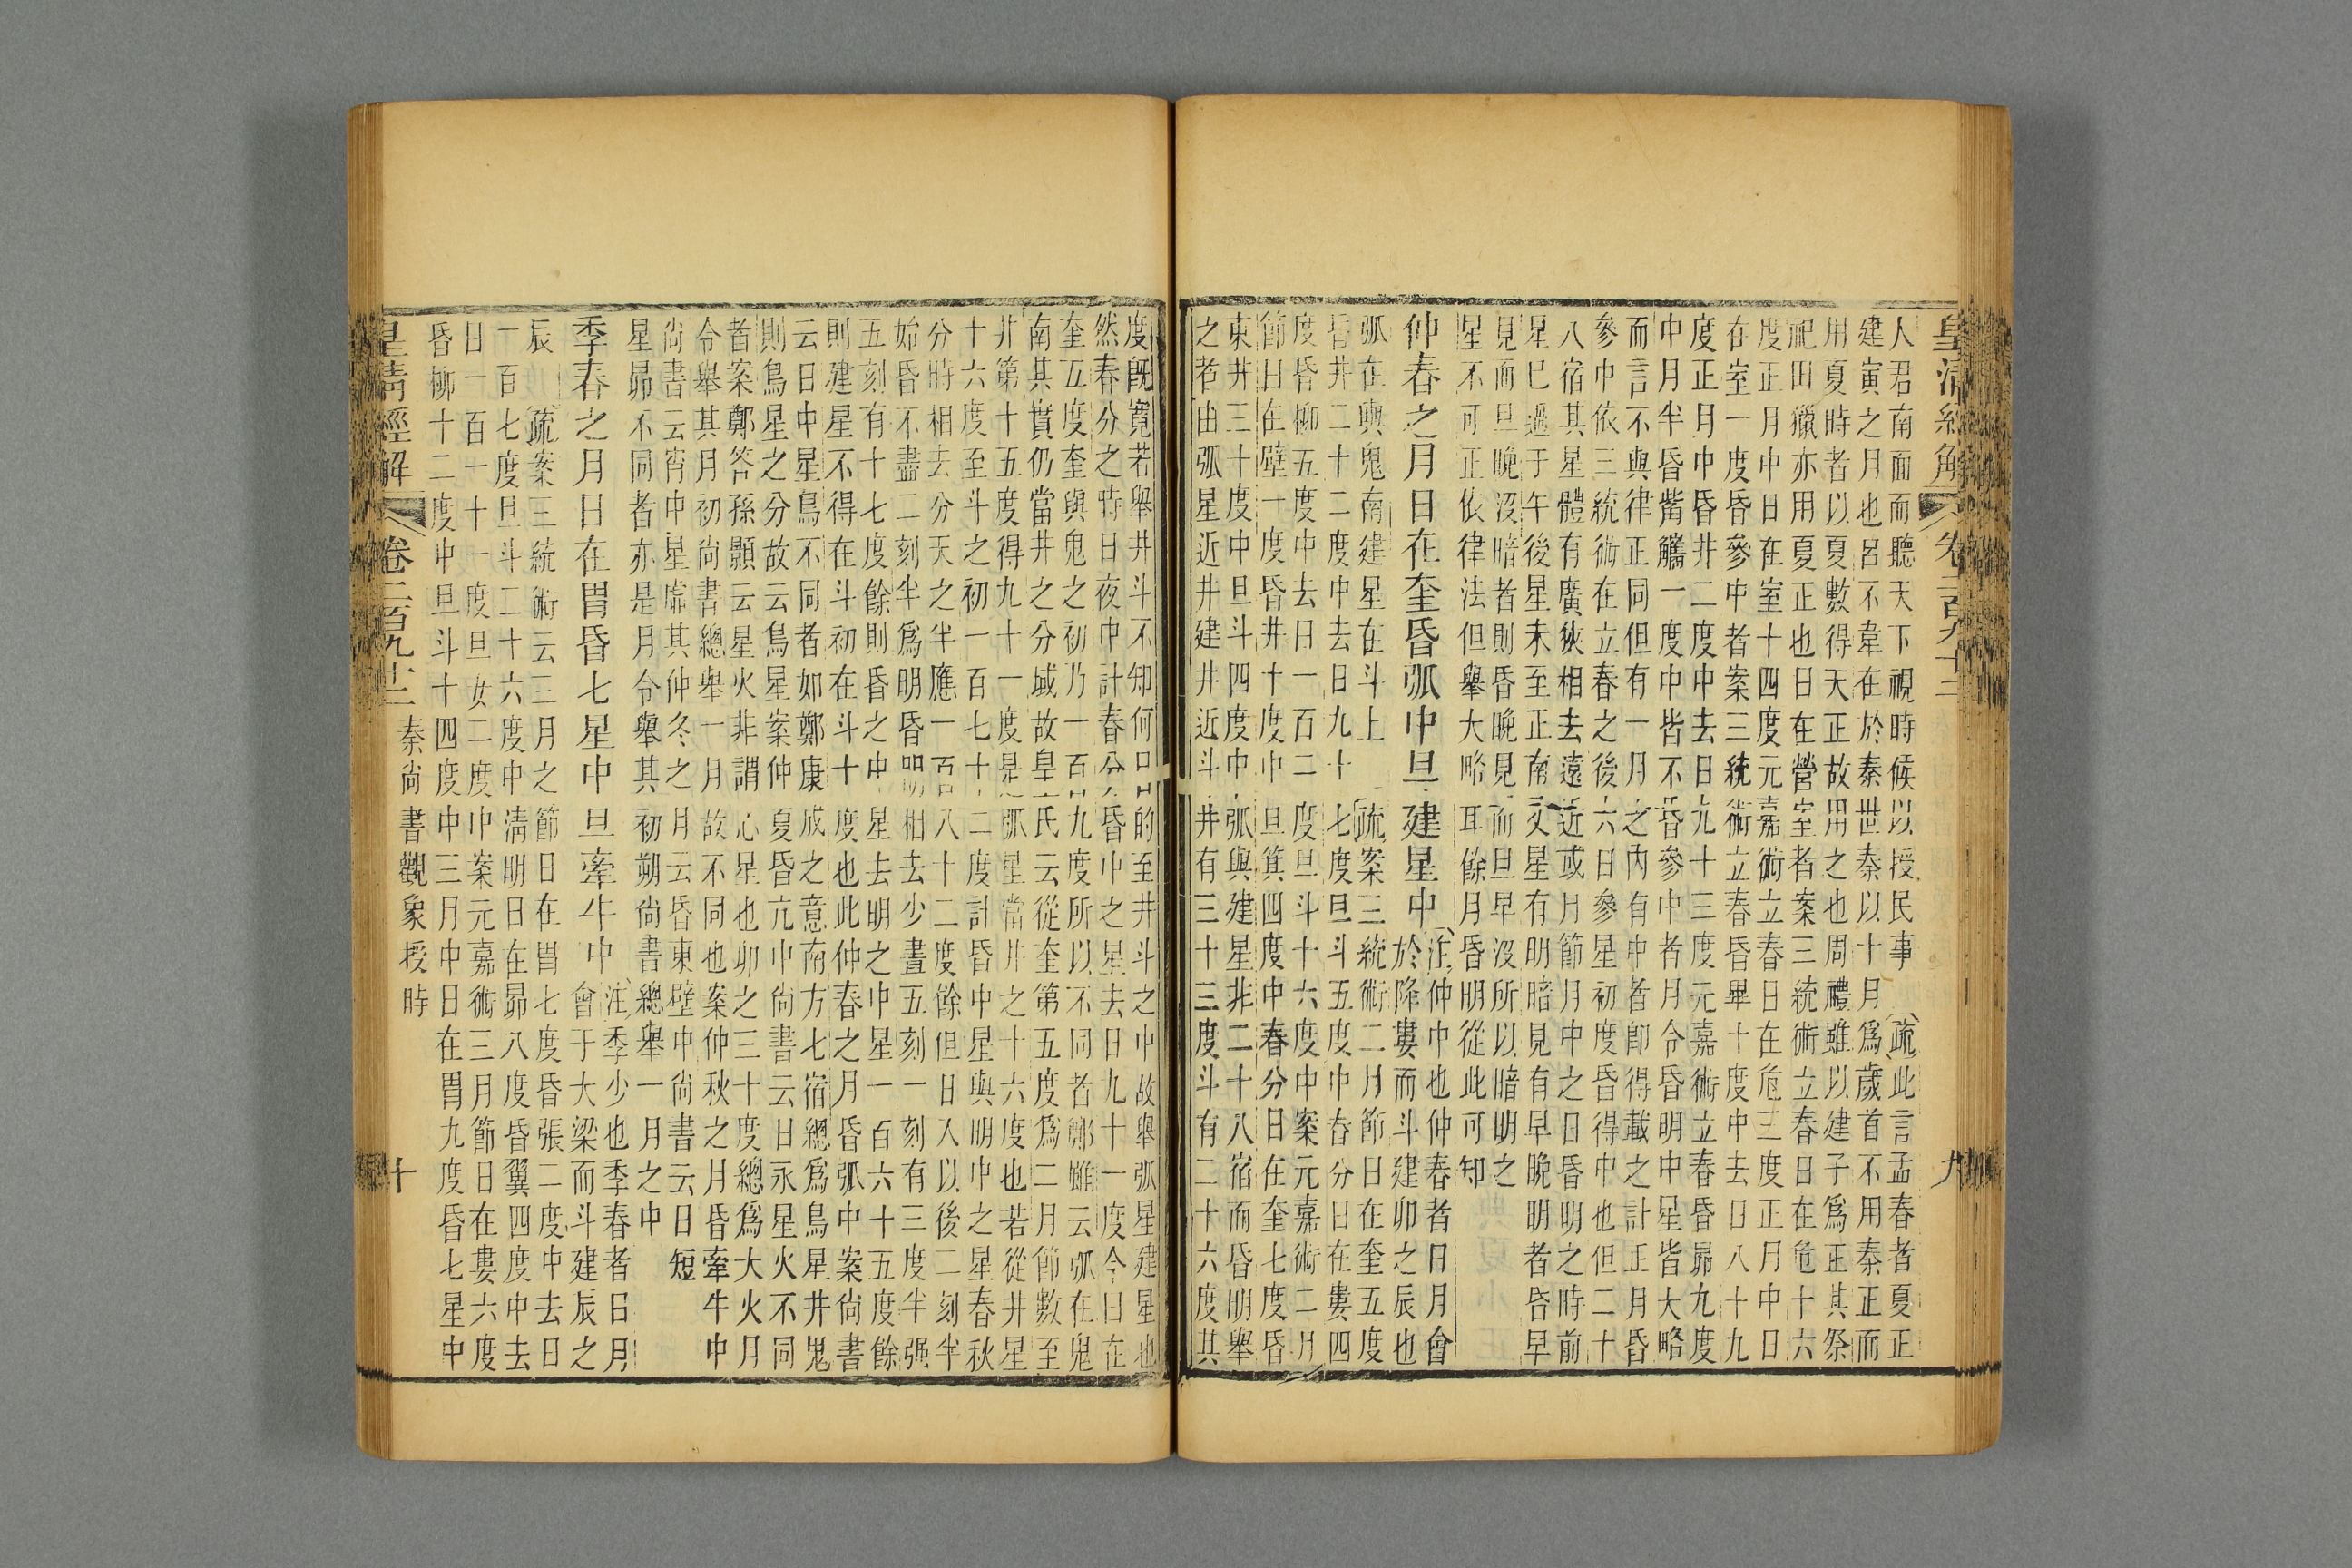 皇清經解 卷二百九十二 九
人君南面而聽天下視時候以授民事〔疏〕此言孟春者夏正
建寅之月也呂不韋在於秦世秦以十月爲歲首不用秦正而
用夏時者以夏數得天正故用之也周禮雖以建子爲正其祭
祀田獵亦用夏正也日在營室者案三統術立春日在危十六
度正月中日在室十四度元嘉術立春日在危三度正月中日
在室一度昏參中者案三統術立春昏畢十度中去日八十九
度正月中昏井二度中去日九十三度元嘉術立春昏昴九度
中月半昏觜觿一度中皆不昏參中者月令昏明中星皆大略
而言不與律正同但有一月之內有中者卽得載之計正月昏
參中依三統術在立春之後六日參星初度昏得中也但二十
八宿其星體有廣狹相去遠近或月節月中之日昏明之時前
星已過于午後星未至正南又星有明暗見有早晚明者昏早
見而旦晚沒暗者則昏晚見而旦早沒所以暗明之
星不可正依律法但舉大略耳餘月昏明從此可知
仲春之月日在奎昏弧中旦建星中〔注〕仲中也仲春者日月會
於降婁而斗建卯之辰也
弧在輿鬼南建星在斗上〔疏〕案三統術二月節日在奎五度
昏井二十二度中去日九十七度旦斗五度中春分日在婁四
度昏柳五度中去日一百二度旦斗十六度中案元嘉術二月
節日在壁一度昏井十度中旦箕四度中春分日在奎七度昏
東井三十度中旦斗四度中弧與建星非二十八宿而昏明舉
之者由弧星近井建井近斗井有三十三度斗有二十六度其
度旣寬若舉井斗不知何日的至井斗之中故舉弧星建星也
然春分之時日夜中計春分昏中之星去日九十一度今日在
奎五度奎與鬼之初乃一百九度所以不同者鄭雖云弧在鬼
南其實仍當井之分域故皇氏云從奎第五度爲二月節數至
井第十五度得九十一度是弧星當井之十六度也若從井星
十六度至斗之初一百七十二度計昏中星與明中之星春秋
分時相去分天之半應一百八十二度餘但日入以後二刻半
始昏不盡二刻半爲明昏明相去少晝五刻一刻有三度半強
五刻有十七度餘則昏之中星去明之中星一百六十五度餘
則建星不得在斗初在斗十度也此仲春之月昏弧中案尚書
云日中星鳥不同者如鄭康成之意南方七宿總爲鳥星井鬼
則鳥星之分故云鳥星案仲夏昏亢中尚書云日永星火不同
者案鄭答孫顥云星火非謂心星也卯之三十度總爲大火月
令舉其月初尚書總舉一月故不同也案仲秋之月昏牽牛中
尚書云宵中星虛其仲冬之月云昏東壁中尚書云日短
星昴不同者亦是月令舉其初朔尚書總舉一月之中
季春之月日在胃昏七星中旦牽牛中〔注〕季少也季春者日月
會于大梁而斗建辰之
辰〔疏〕案三統術云三月之節日在胃七度昏張二度中去日
一百七度旦斗二十六度中清明日在昴八度昏翼四度中去
日一百一十一度旦女二度中案元嘉術三月節日在婁六度
昏柳十二度中旦斗十四度中三月中日在胃九度昏七星中
皇清經解 卷二百九十二 秦尚書觀象授時 十